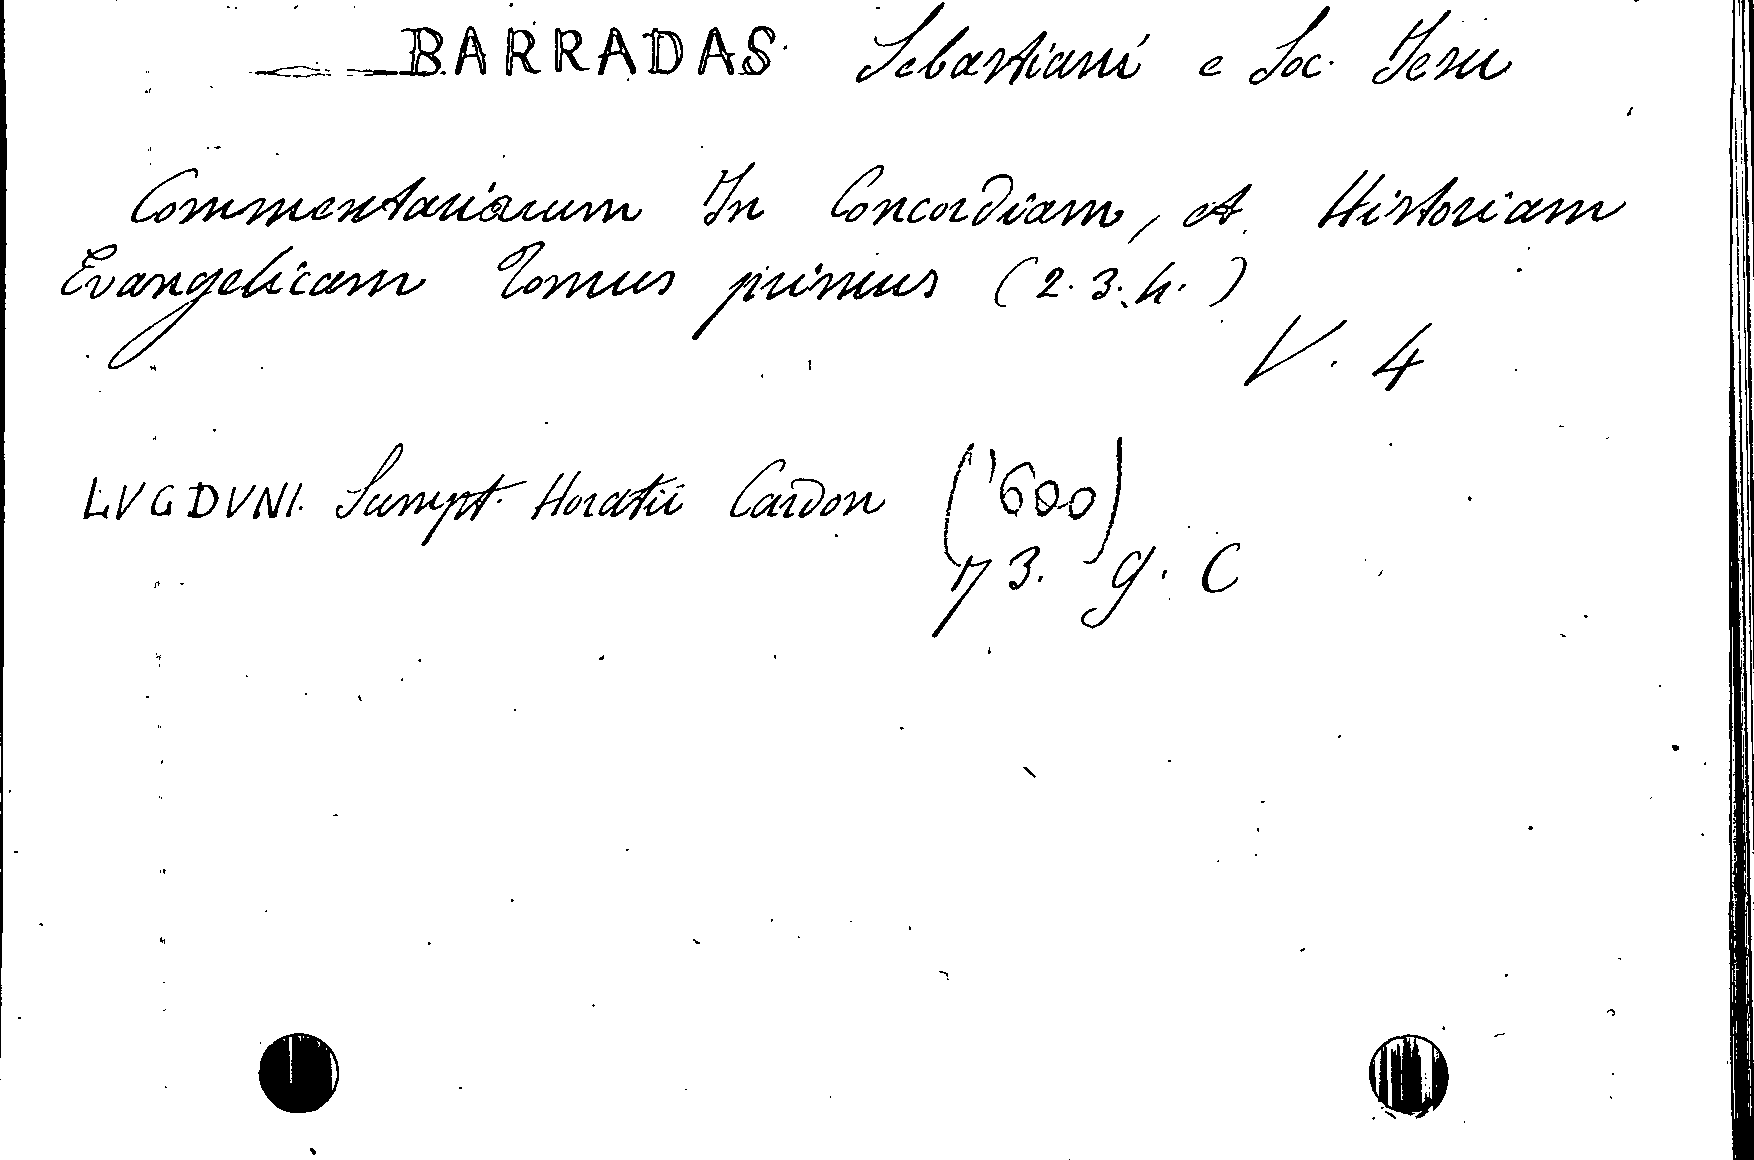 BARRADAS Sebastiani e Soc. Iesu
Commentariorum In Concordiam, et Historiam
Evangelicam Tomus primus (2. 3. 4.)
V. 4
LVGDVNI. Sumpt. Horatii Cardon ('600)
73. g. C